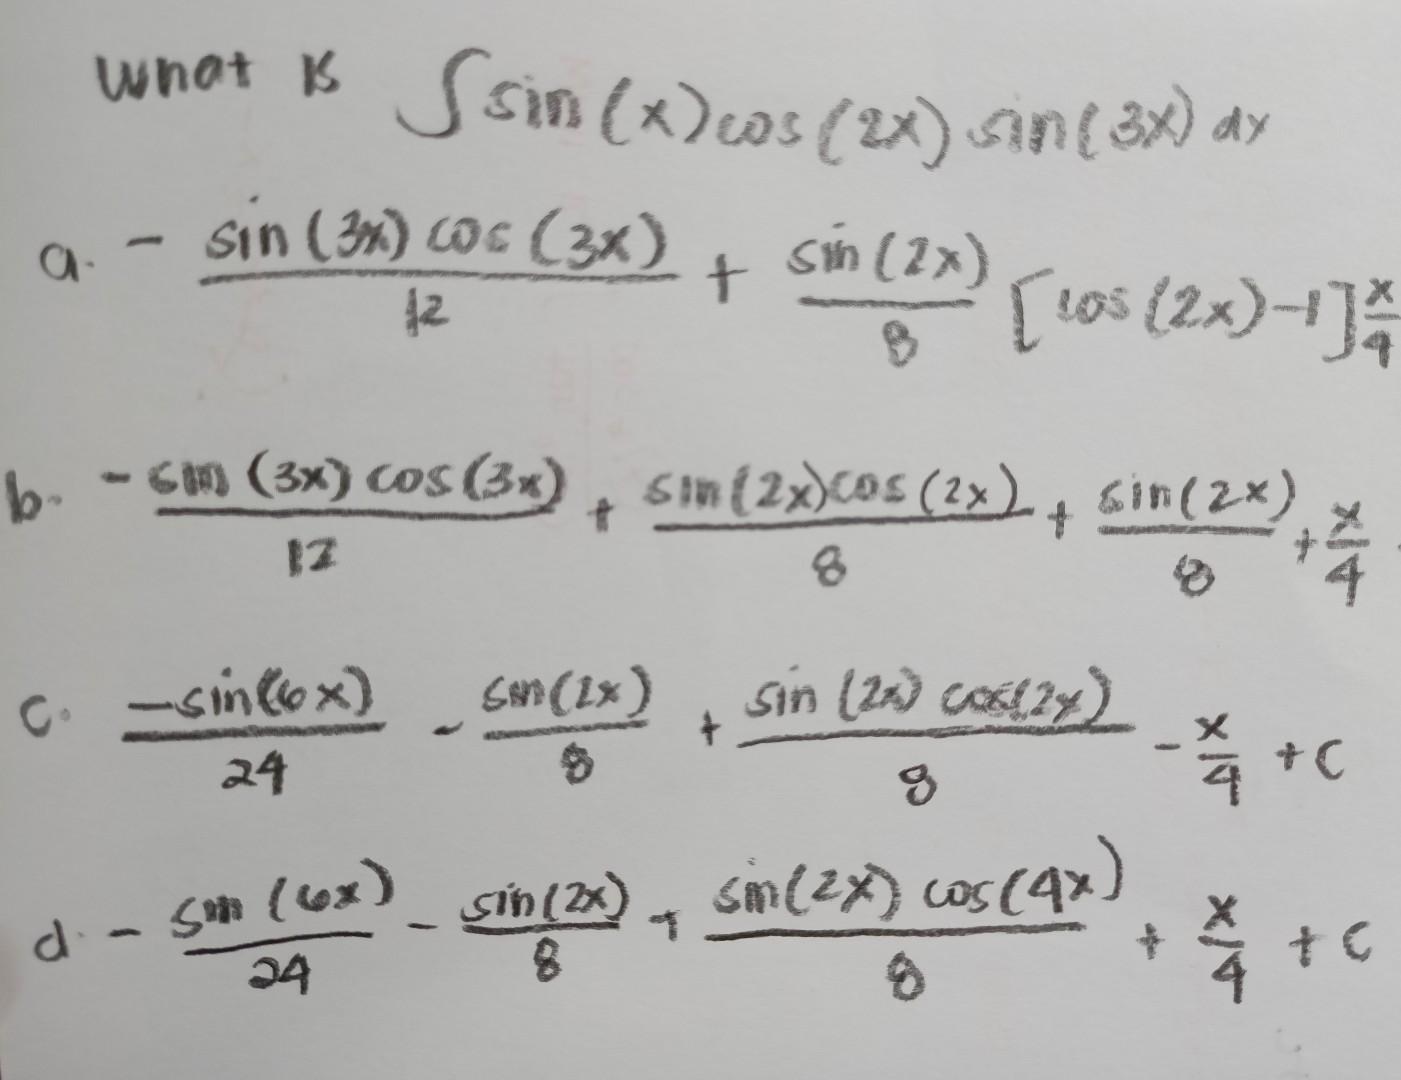 What is ∫ sin(x)cos(2x) sin(3x) dx
a. - sin(3x) cos(3x)/12 + sin(2x)/8 [cos(2x)-1] x/4
b. - sin(3x) cos(3x)/12 + sin(2x)cos(2x)/8 + sin(2x)/8 + x/4
c. -sin(6x)/24 - sin(2x)/8 + sin(2x) cos(2x)/8 - x/4 + C
d. - sin(6x)/24 - sin(2x)/8 + sin(2x) cos(4x)/8 + x/4 + C